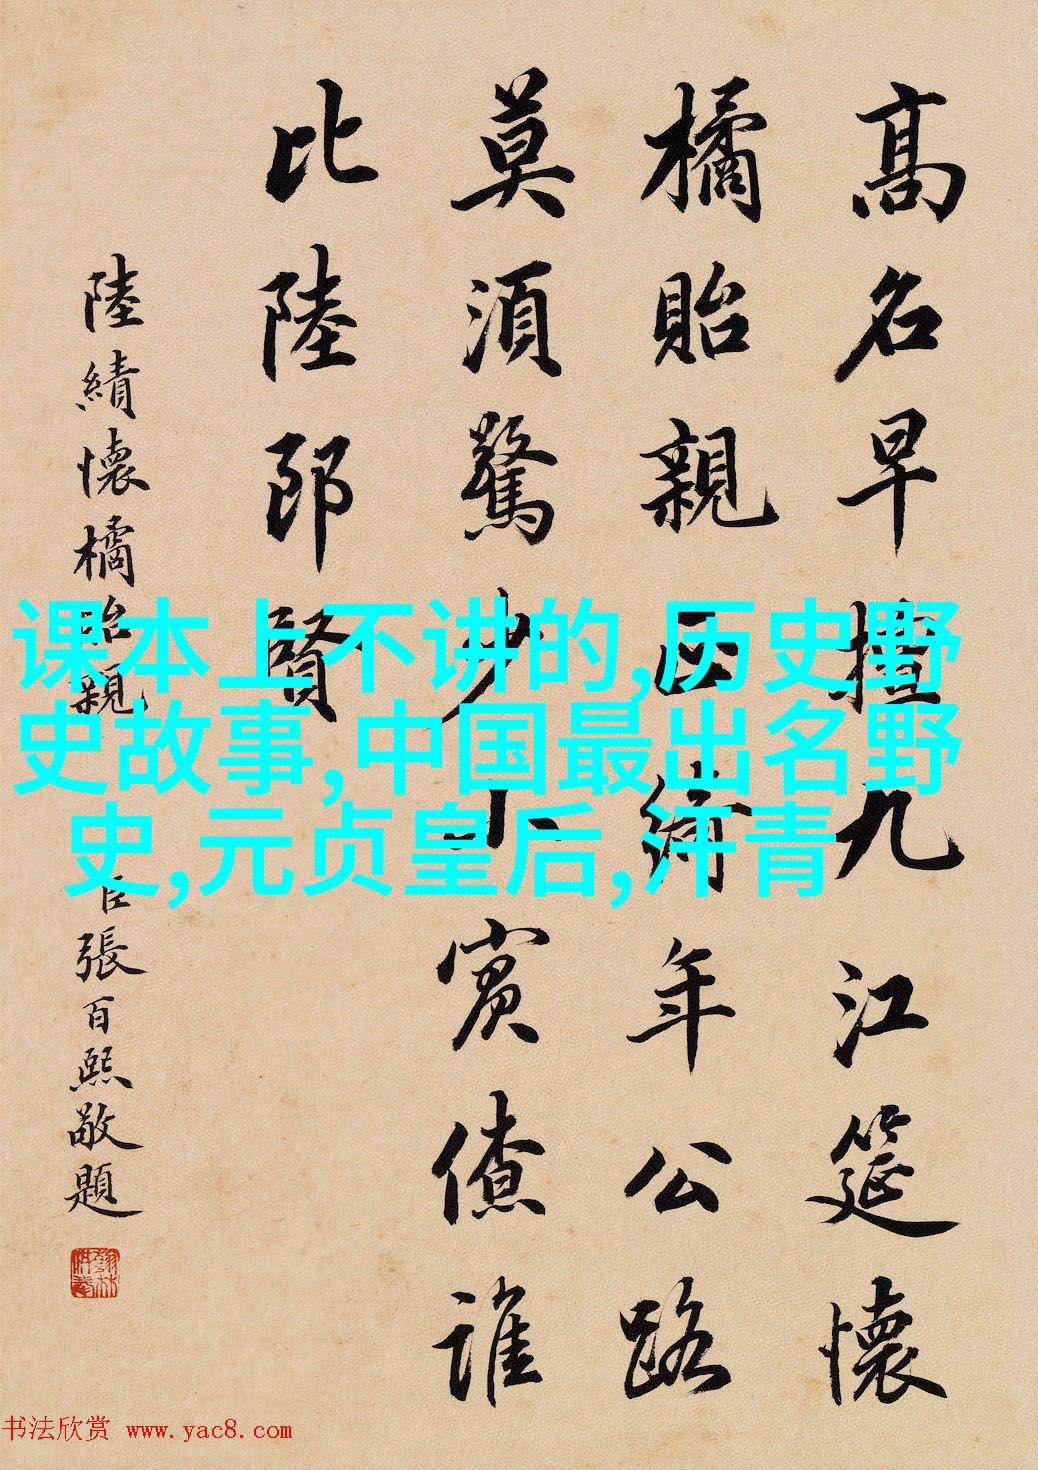 高名早擅九江筵懷
橘貽親正綺年公路
莫須驚少小賓僚誰
比陸郎賢
陸績懷橘貽親 臣張百熙敬題
课本上不讲的,历史野
史故事,中国最出名野
史,元贞皇后,汗青
书法欣赏 www.yac8.com